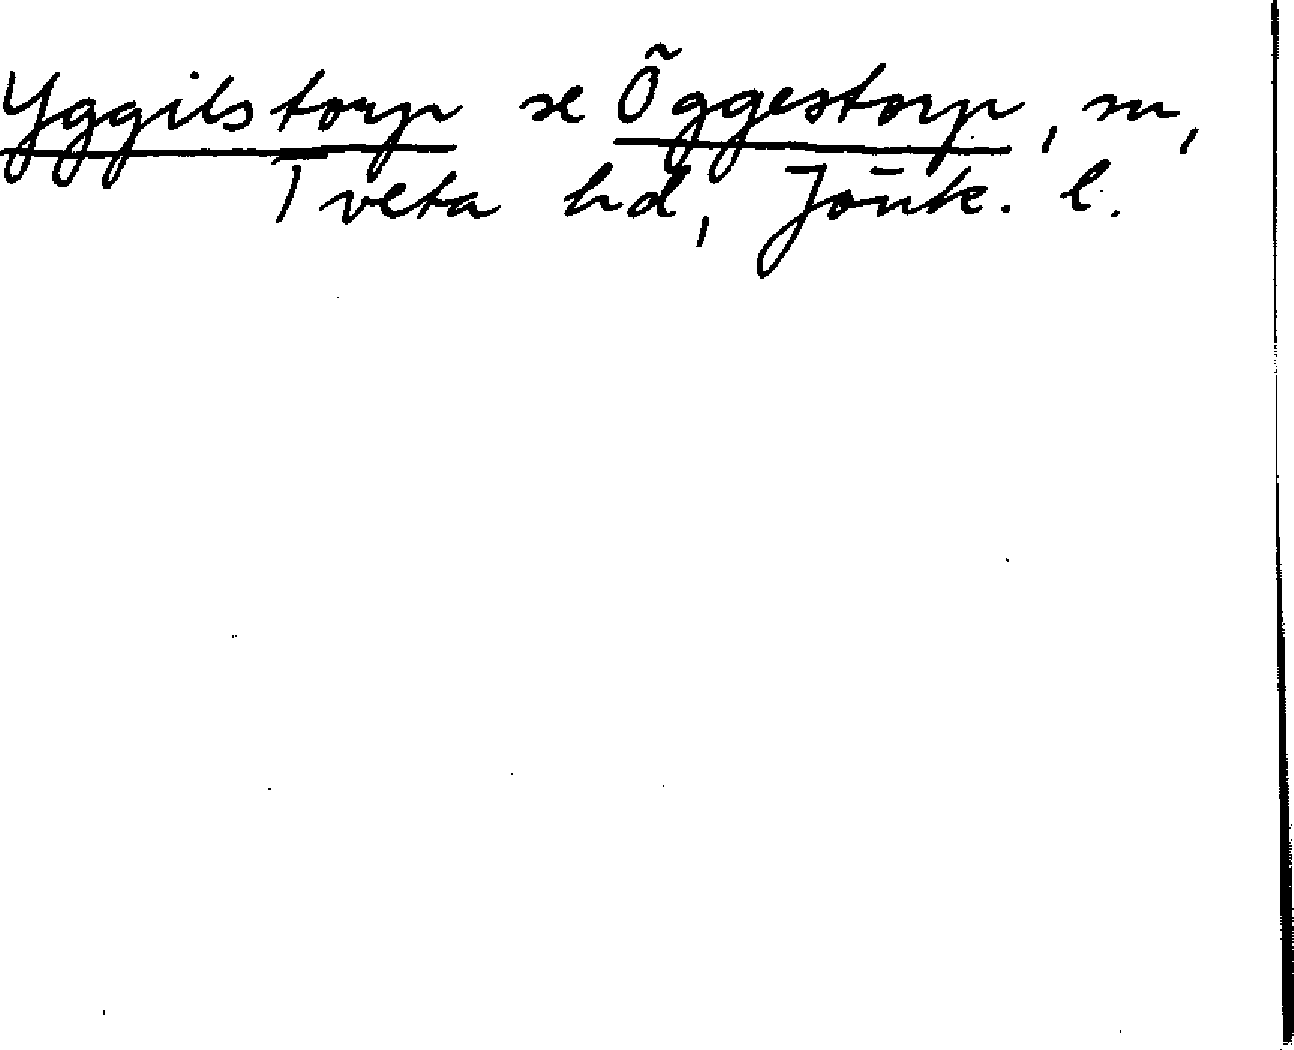 Yggilstorp se Öggestorp, sn,
Tveta hd, Jönk. l.